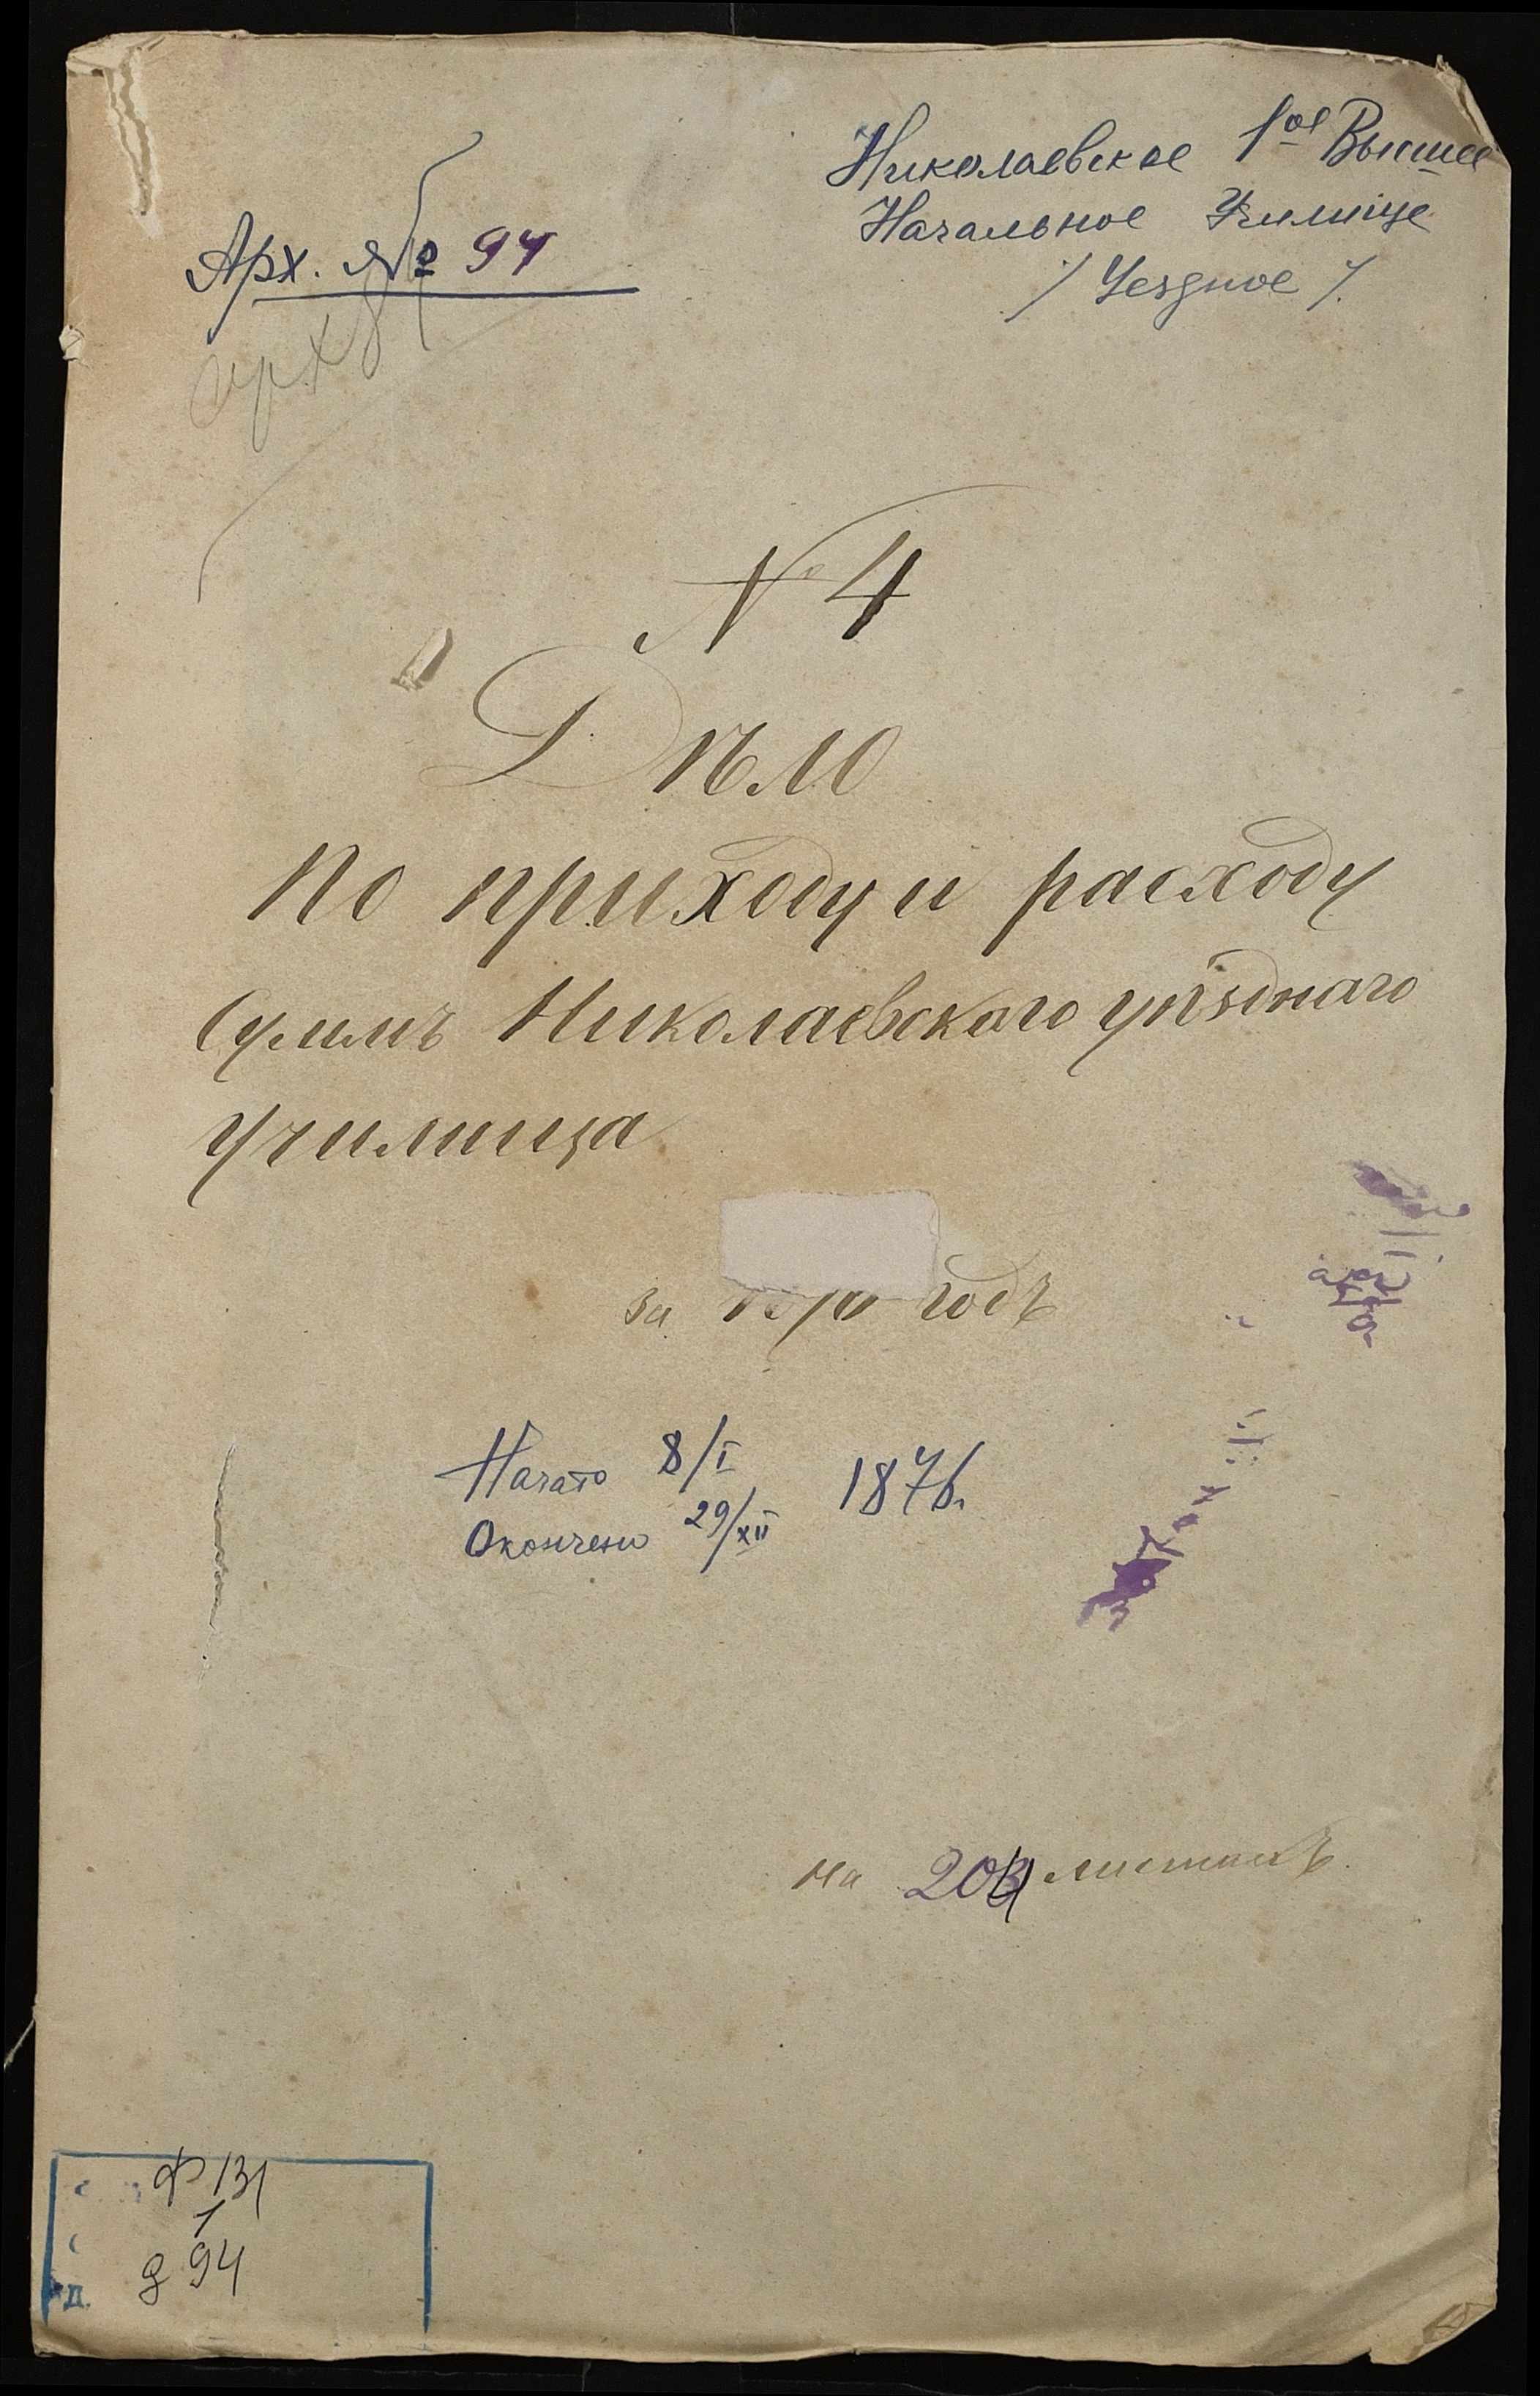 Николаевское 1ое Высшее
Начальное Училище
/Уездное/.
Арх. № 94
арх
№ 4
Дѣло
По приходу и расходу
Суммъ Николаевскаго уѣзднаго
училища
за годъ
Начато 8/I 1876.
Окончено 29/XII
на 204 листахъ.
Ф 131
1
Д. д 94